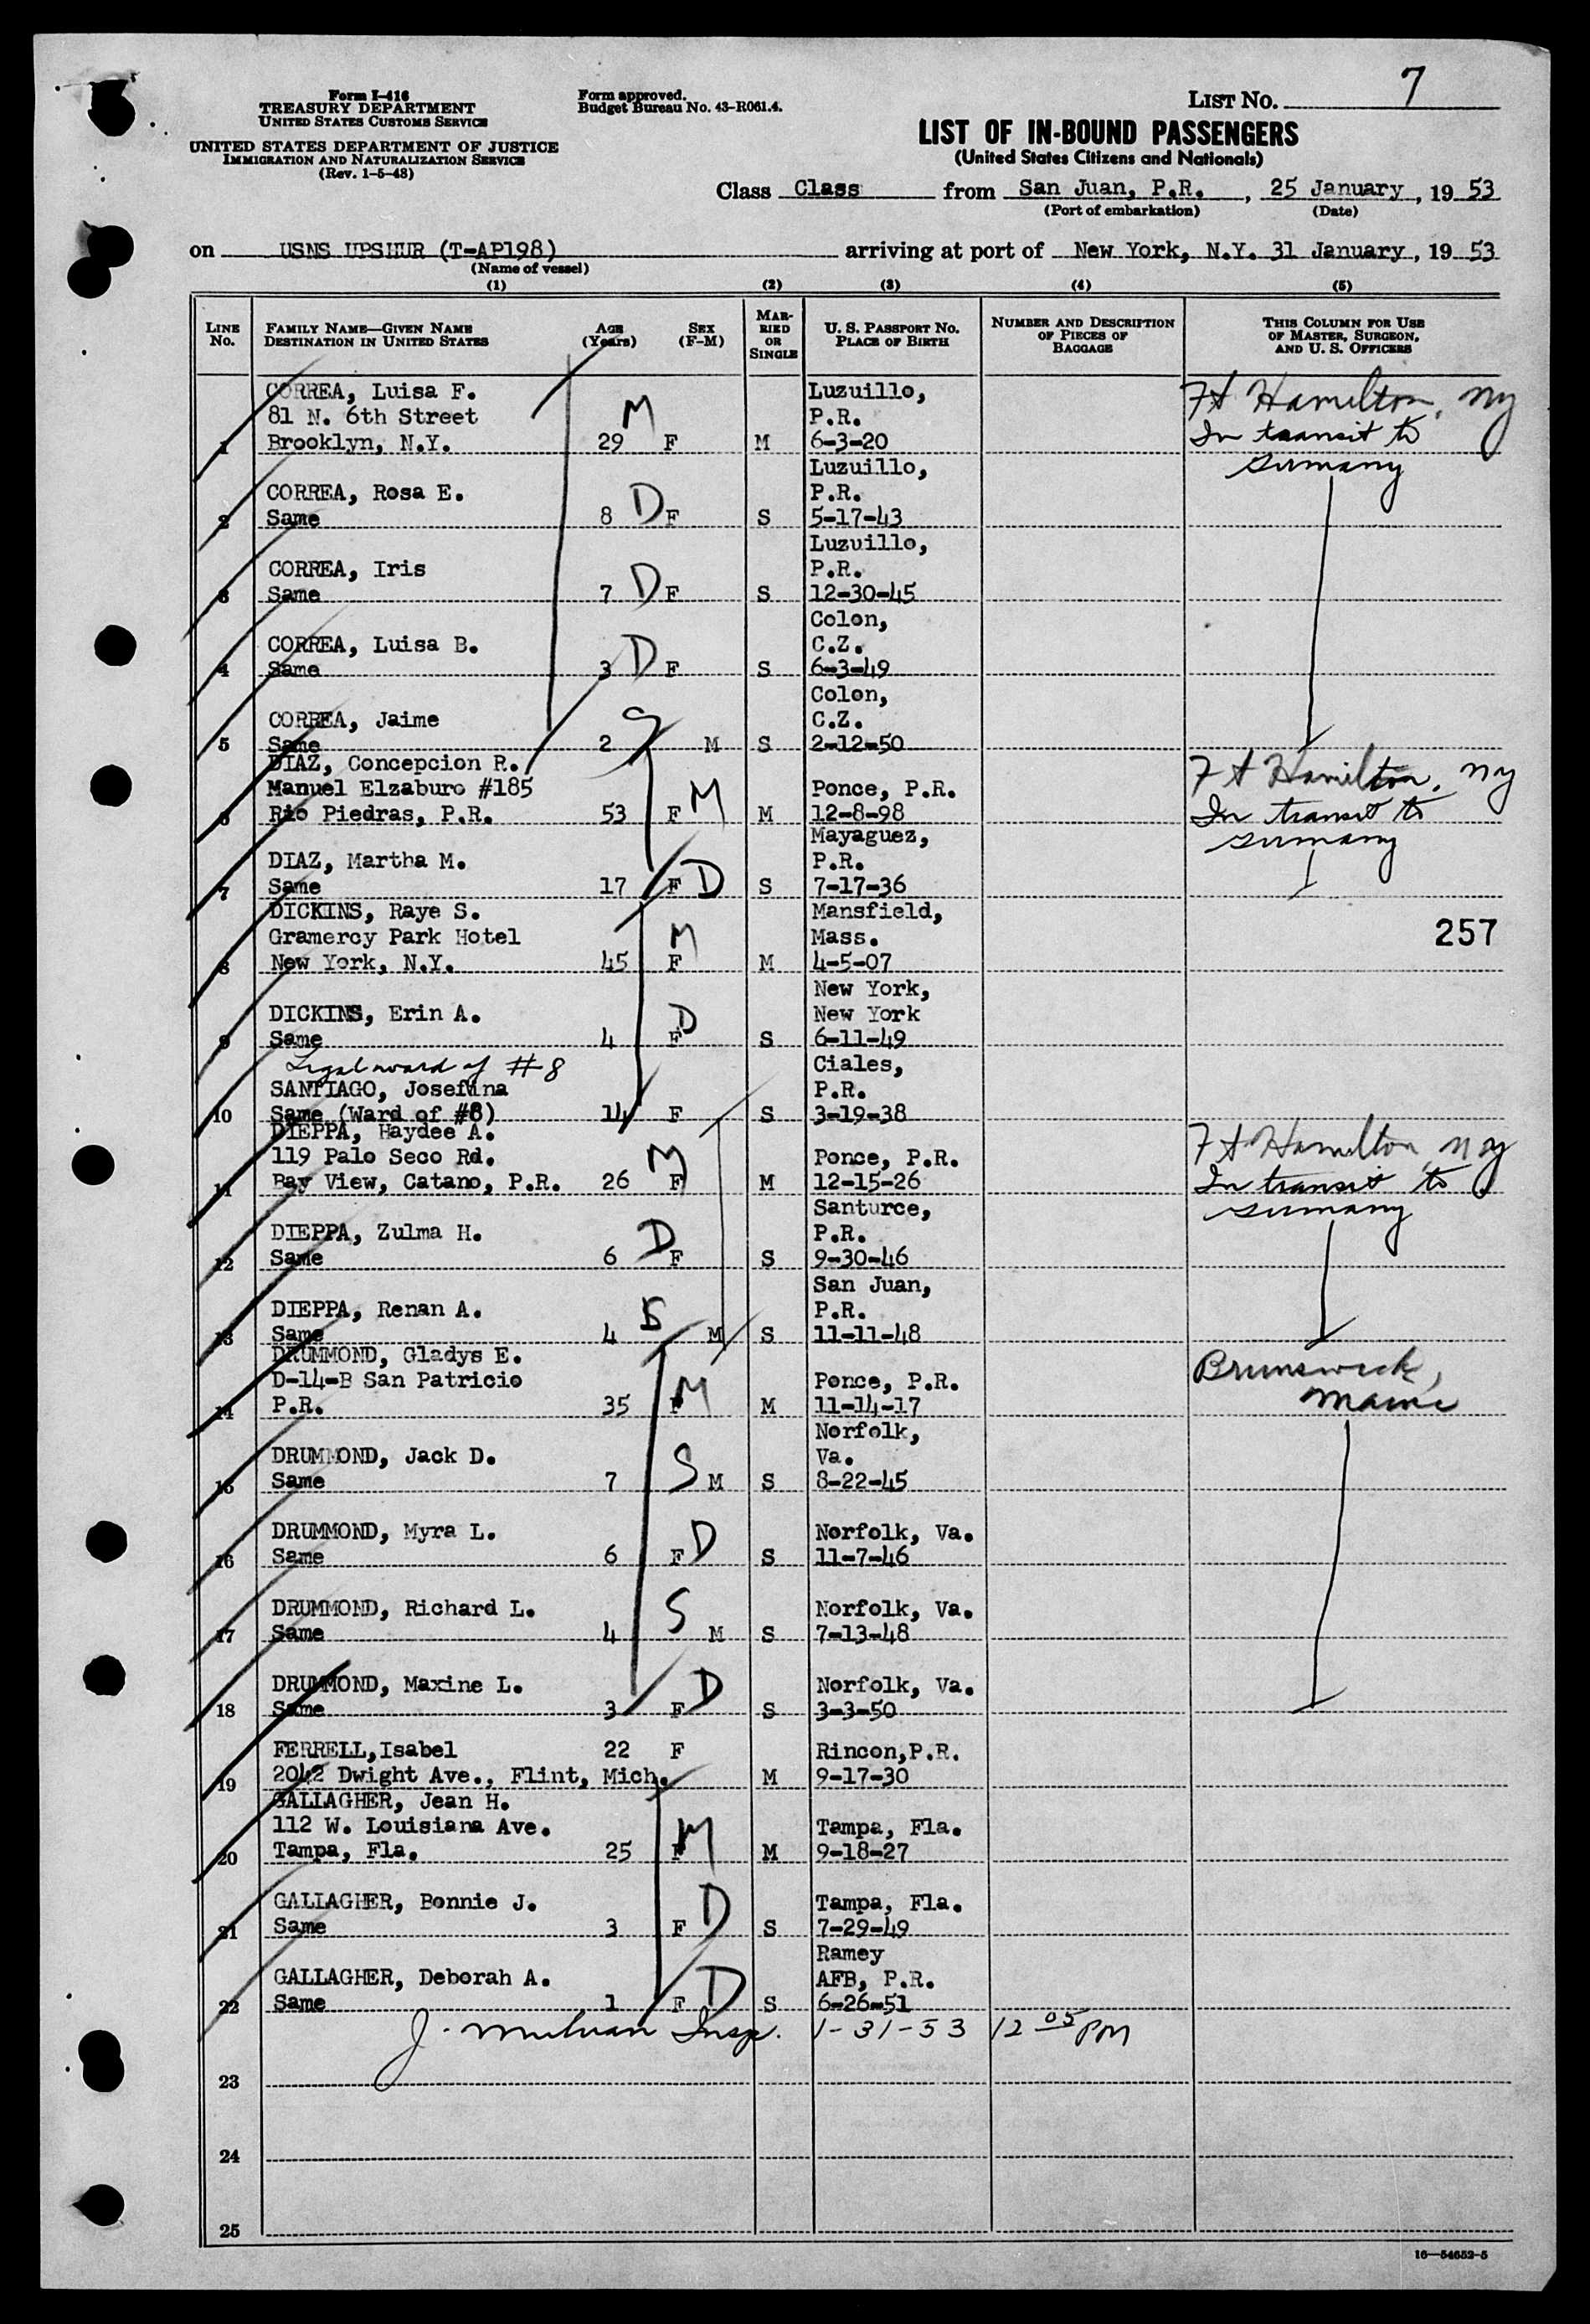 Form I-416
TREASURY DEPARTMENT
UNITED STATES CUSTOMS SERVICE
UNITED STATES DEPARTMENT OF JUSTICE
IMMIGRATION AND NATURALIZATION SERVICE
(Rev. 1-5-48)
Form approved.
Budget Bureau No. 43-R061.4.
LIST NO. 7
LIST OF IN-BOUND PASSENGERS
(United States Citizens and Nationals)
Class Class from San Juan, P.R., 25 January, 19 53
(Port of embarkation) (Date)
on USNS UPSHUR (T-AP198) arriving at port of New York, N.Y. 31 January, 19 53
(Name of vessel)
(1) (2) (3) (4) (5)
LINE NO.
FAMILY NAME—GIVEN NAME
DESTINATION IN UNITED STATES
AGE (Years)
SEX (F-M)
MARRIED OR SINGLE
U. S. PASSPORT NO.
PLACE OF BIRTH
NUMBER AND DESCRIPTION OF PIECES OF BAGGAGE
THIS COLUMN FOR USE OF MASTER, SURGEON, AND U. S. OFFICERS
CORREA, Luisa F. Luzuillo, Ft Hamilton, NY
81 N. 6th Street M P.R. In transit to
1 Brooklyn, N.Y. 29 F M 6-3-20 Germany
Luzuillo,
CORREA, Rosa E. P.R.
2 Same 8 D F S 5-17-43
Luzuillo,
CORREA, Iris P.R.
3 Same 7 D F S 12-30-45
Colon,
CORREA, Luisa B. C.Z.
4 Same 3 D F S 6-3-49
Colon,
CORREA, Jaime C.Z.
5 Same 2 S M S 2-12-50
DIAZ, Concepcion R. Ft Hamilton, NY
Manuel Elzaburo #185 Ponce, P.R. In transit to
6 Rio Piedras, P.R. 53 F M M 12-8-98 Germany
Mayaguez,
DIAZ, Martha M. P.R.
7 Same 17 F D S 7-17-36
DICKINS, Raye S. Mansfield,
Gramercy Park Hotel M Mass. 257
8 New York, N.Y. 45 F M 4-5-07
New York,
DICKINS, Erin A. D New York
9 Same 4 F S 6-11-49
Legal ward of #8 Ciales,
SANTIAGO, Josefina P.R.
10 Same (Ward of #8) 14 F S 3-19-38
DIEPPA, Haydee A. Ft Hamilton NY
119 Palo Seco Rd. M Ponce, P.R. In transit to
11 Bay View, Catano, P.R. 26 F M 12-15-26 Germany
Santurce,
DIEPPA, Zulma H. D P.R.
12 Same 6 F S 9-30-46
San Juan,
DIEPPA, Renan A. S P.R.
13 Same 4 M S 11-11-48
DRUMMOND, Gladys E. Brunswick,
D-14-B San Patricio Ponce, P.R. Maine
14 P.R. 35 F M M 11-14-17
Norfolk,
DRUMMOND, Jack D. Va.
15 Same 7 S M S 8-22-45
DRUMMOND, Myra L. Norfolk, Va.
16 Same 6 F D S 11-7-46
DRUMMOND, Richard L. S Norfolk, Va.
17 Same 4 M S 7-13-48
DRUMMOND, Maxine L. Norfolk, Va.
18 Same 3 F D S 3-3-50
FERRELL,Isabel 22 F Rincon,P.R.
19 2042 Dwight Ave., Flint, Mich. M 9-17-30
GALLAGHER, Jean H.
112 W. Louisiana Ave. Tampa, Fla.
20 Tampa, Fla. 25 F M M 9-18-27
GALLAGHER, Bonnie J. Tampa, Fla.
21 Same 3 F D S 7-29-49
Ramey
GALLAGHER, Deborah A. AFB, P.R.
22 Same 1 F D S 6-26-51
J. Insp. 1-31-53 12 05 PM
23
24
25
16—54652-5